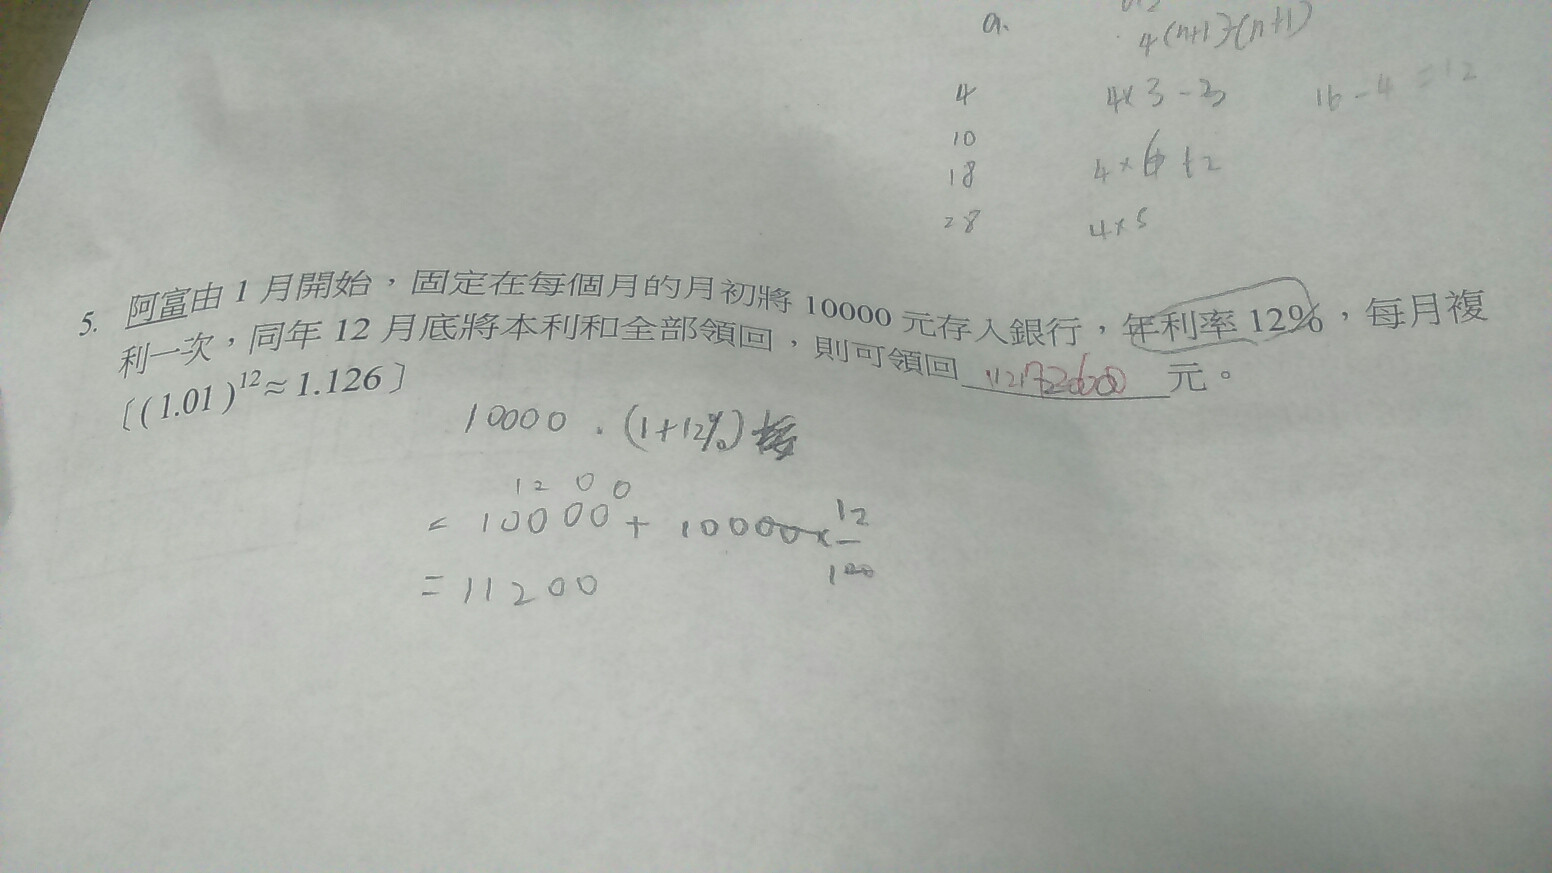 a.
4(n+1)-(n+1)
4 4×3-3 16-4=12
10
18 4×6+2
28 4×5
5. 阿富由 1 月開始，固定在每個月的月初將 10000 元存入銀行，年利率 12%，每月複
利一次，同年 12 月底將本利和全部領回，則可領回 元。
〔(1.01)^12≈1.126〕
10000．(1+12%)
1200
= 10000 + 10000×12/100
= 11200